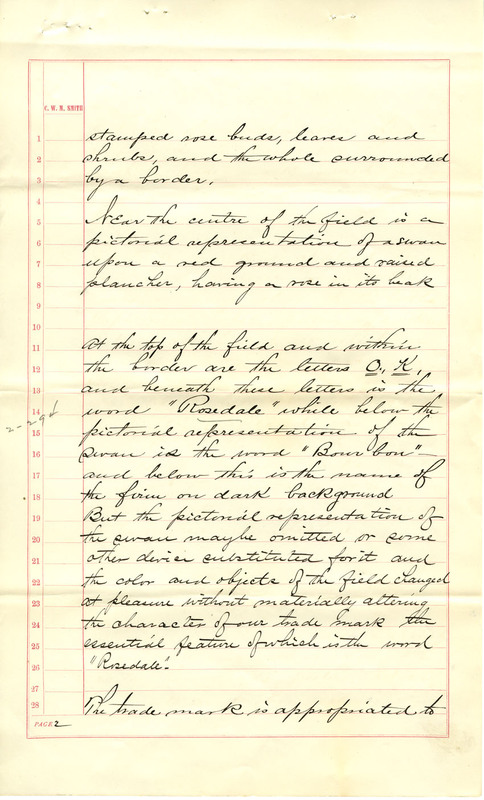 C. W. M. SMITH
1 stamped rose buds, leaves and
2 shrubs, and the whole surrounded
3 by a border.
4
5 Near the centre of the field is a
6 pictorial representation of a swan
7 upon a red ground and raised
8 plancher, having a rose in its beak
9
10
11 At the top of the field and within
12 the border are the letters O. K.,
13 and beneath these letters is the
14 word "Rosedale" while below the
15 pictorial representation of the
16 swan is the word "Bourbon" —
17 and below this is the name of
18 the firm on dark background
19 But the pictorial representation of
20 the swan may be omitted or some
21 other device substituted for it and
22 the color and objects of the field changed
23 at pleasure without materially altering
24 the character of our trade mark the
25 essential feature of which is the word
26 "Rosedale".
27
28 The trade mark is appropriated to
PAGE 2